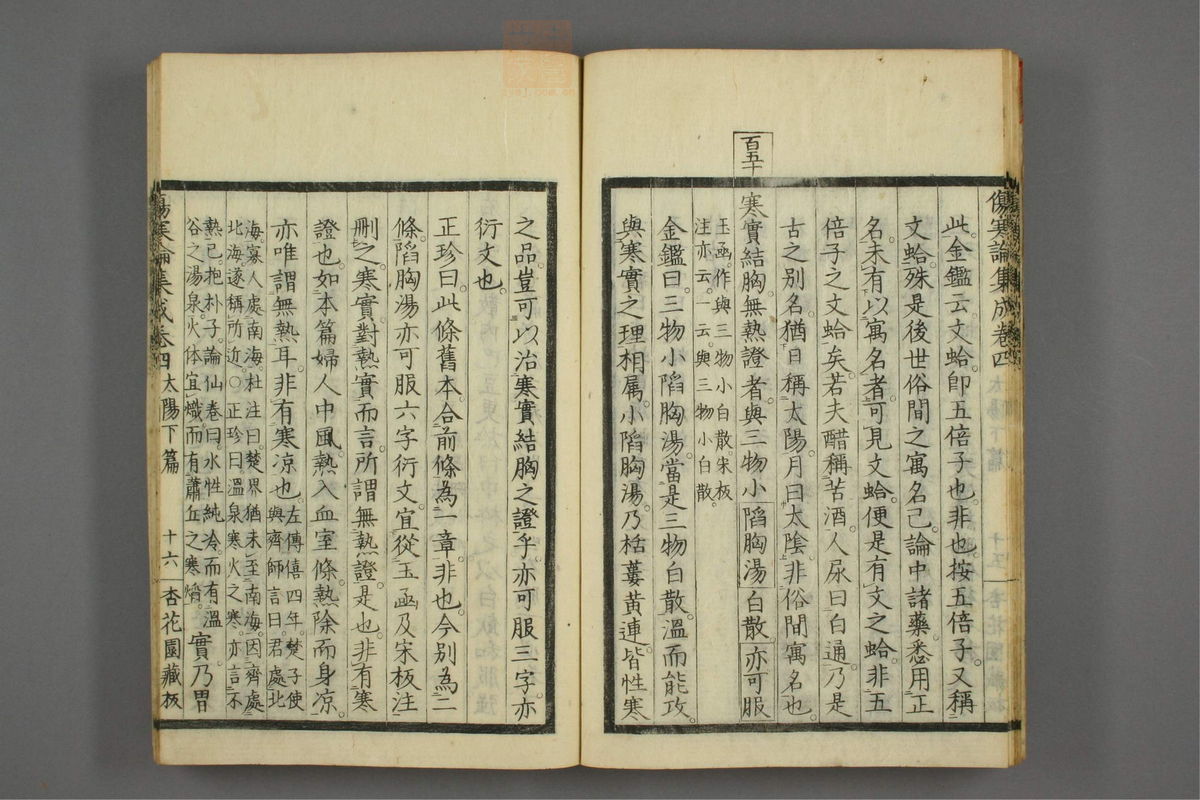 傷寒論集成卷四
此。金鑑云。文蛤。卽五倍子也。非也。按五倍子。又稱
文蛤。殊是後世俗間之寓名已。論中諸藥。悉用正
名。未有以寓名者。可見文蛤便是有文之蛤。非五
倍子之文蛤矣。若夫醋稱苦酒。人尿曰白通。乃是
古之別名。猶日稱太陽。月曰太陰。非俗間寓名也。
百五十
寒實結胸。無熱證者。與三物小陷胸湯白散。亦可服
玉函。作與三物小白散。宋板
注亦云。一云。與三物小白散。
金鑑曰。三物小陷胸湯。當是三物白散。溫而能攻。
與寒實之理相属。小陷胸湯。乃栝蔞黃連。皆性寒
之品。豈可以治寒實結胸之證乎。亦可服三字。亦
衍文也。
正珍曰。此條舊本合前條為一章。非也。今別為二
條。陷胸湯亦可服六字衍文。宜從玉函及宋板注
刪之。寒實。對熱實而言。所謂無熱證。是也。非有寒
證也。如本篇婦人中風。熱入血室條。熱除而身凉。
亦唯謂無熱耳。非有寒凉也。左傳僖四年。楚子使
與齊師言曰。君處北
海。寡人處南海。杜注曰。楚界猶未至南海。因齊處
北海。遂稱所近。○正珍曰。溫泉寒火之寒。亦言不
熱已。抱朴子。論仙卷曰。水性純冷。而有溫
谷之湯泉。火体宜熾。而有蕭丘之寒焰。實。乃胃
傷寒論集成卷四 太陽下篇 十六 杏花園藏板